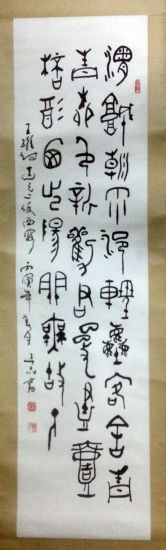 渭城朝雨浥輕塵客舍青
青柳色新勸君更盡一
桮酒西出陽關無故人
王維詩送元二使安西 丙寅年